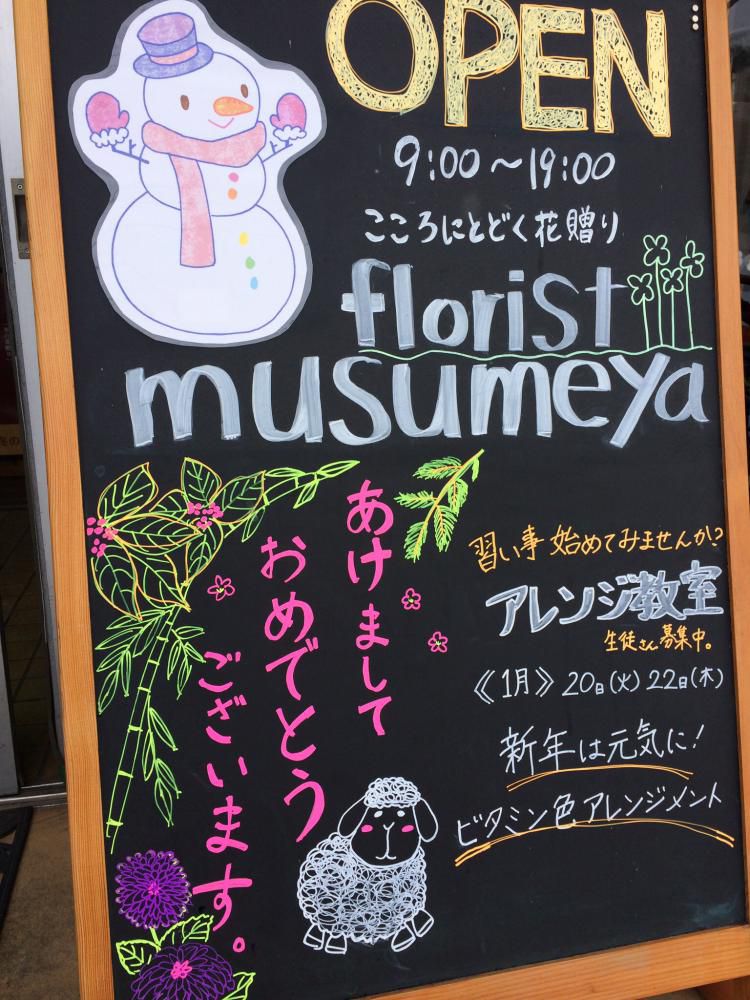 OPEN
9:00〜19:00
こころにとどく花贈り
florist
musumeya
あけまして
おめでとう
ございます。
習い事始めてみませんか?
アレンジ教室
生徒さん募集中。
《1月》20日(火)22日(木)
新年は元気に!
ビタミン色アレンジメント